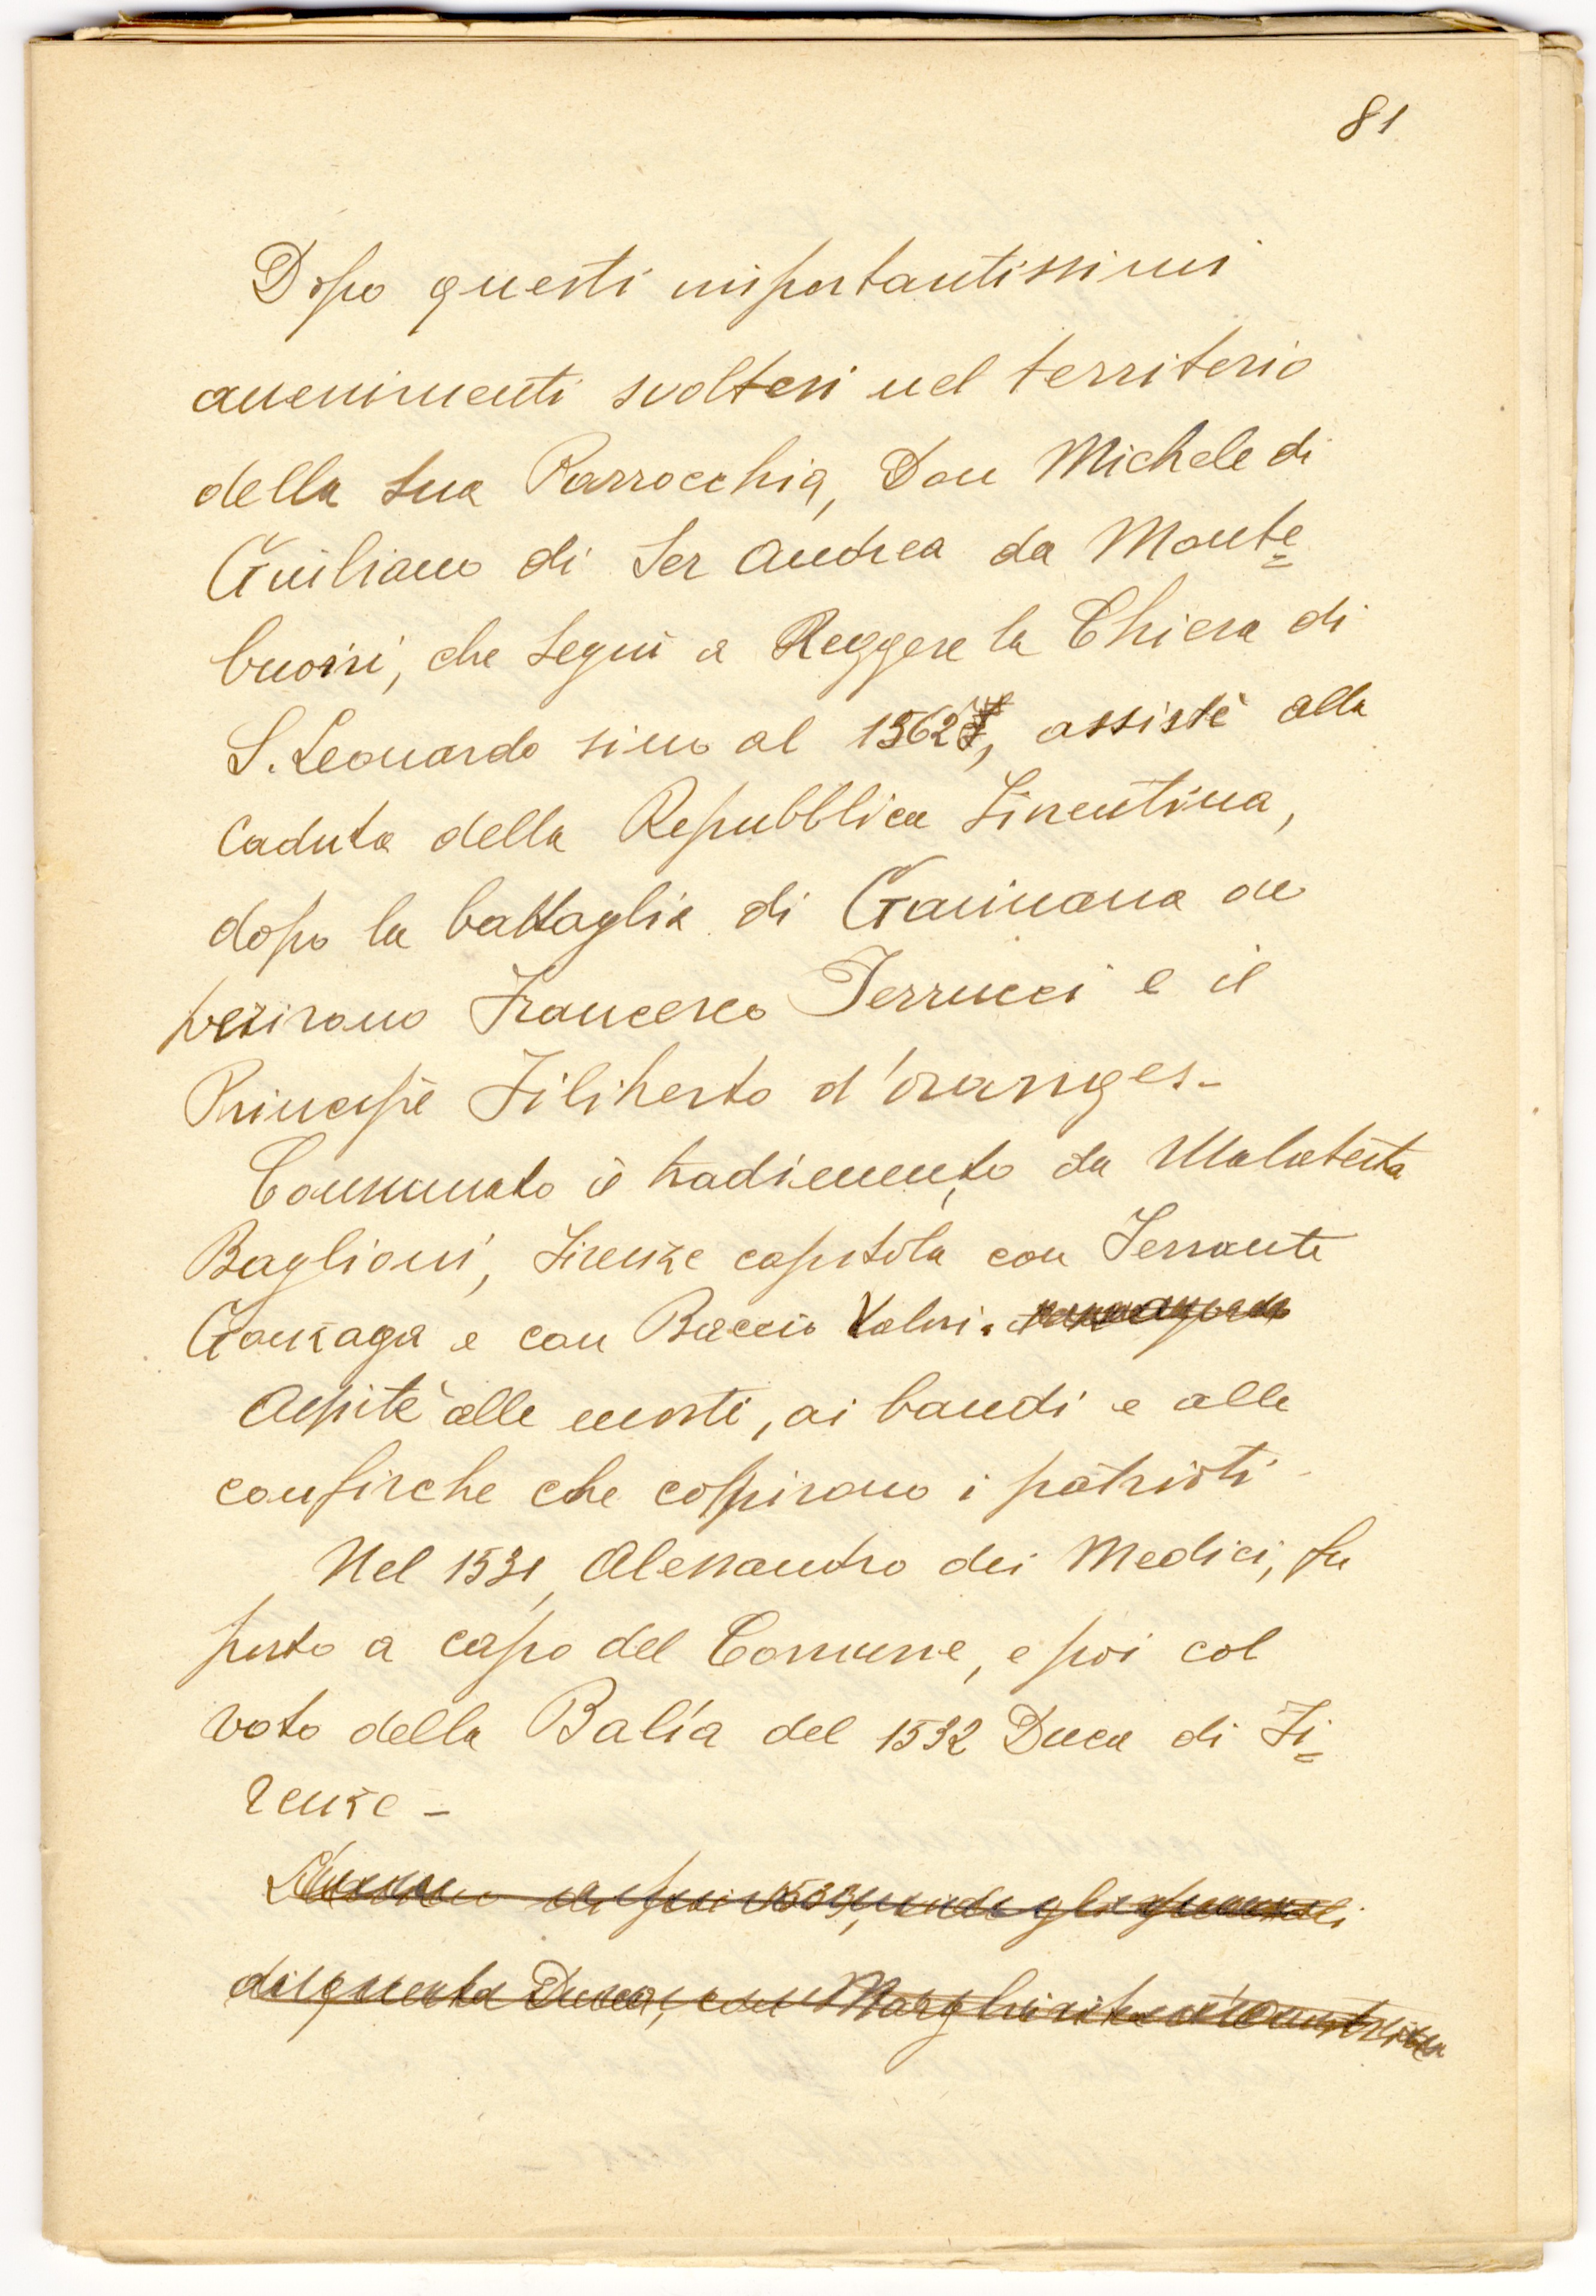 81
Dopo questi importantissimi
avvenimenti svoltesi nel territorio
della sua Parrocchia, Don Michele di
Giuliano di Ser Andrea da Monte=
buoni, che seguì a Reggere la Chiesa di
S. Leonardo sino al 1562, assistè alla
caduta della Repubblica Fiorentina,
dopo la battaglia di Gavinana ove
perirono Francesco Ferrucci e il
Principe Filiberto d'oranges-
Consumato il tradimento da Malatesta
Baglioni, Firenze capitola con Ferrante
Gonzaga e con Baccio Valori.
Aspitè alle morti, ai bandi e alle
confische che colpirono i patrioti -
Nel 1531, Alessandro dei Medici, fu
posto a capo del Comune, e poi col
voto della Balía del 1532 Duca di Fi=
renze -
di questo Duca, con Margherita d'Austria